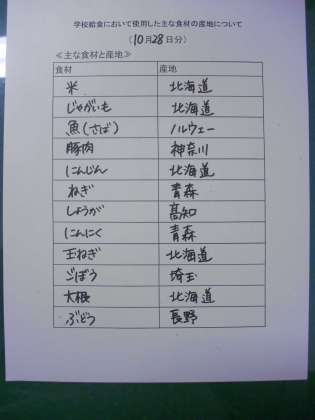 学校給食において使用した主な食材の産地について
(10月28日分)
≪主な食材と産地≫
食材 産地
米 北海道
じゃがいも 北海道
魚(さば) ノルウェー
豚肉 神奈川
にんじん 北海道
ねぎ 青森
しょうが 高知
にんにく 青森
玉ねぎ 北海道
ごぼう 埼玉
大根 北海道
ぶどう 長野